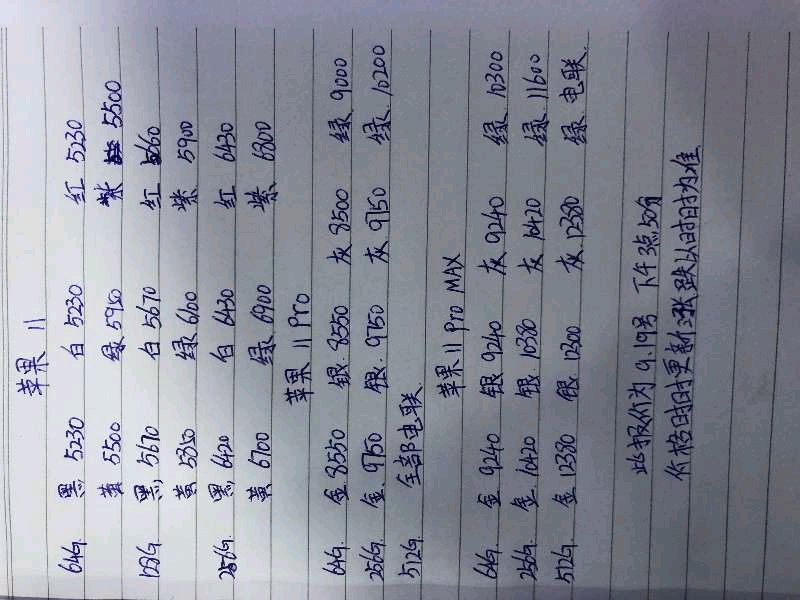 苹果 11
64G. 黑 5230 白 5230 红 5230
黄 5500 绿 5950 紫 5500
128G. 黑 5670 白 5670 红 5660
黄 5850 绿 6100 紫 5900
256G. 黑 6420 白 6430 红 6430
黄 6700 绿 6900 紫 6800
苹果 11 Pro
64G. 金 8550 银. 8550 灰 8500 绿. 9000
256G. 金. 9750 银. 9750 灰 9750 绿. 10200
512G. 全部电联
苹果 11 Pro MAX
64G. 金 9240 银 9240 灰 9240 绿. 10300
256G. 金 10420 银. 10380 灰. 10420 绿. 11600
512G 金 12380 银. 12300 灰. 12380 绿 电联.
此报价为 9.19号 下午3点50分
价格时时更新涨跌以时时为准